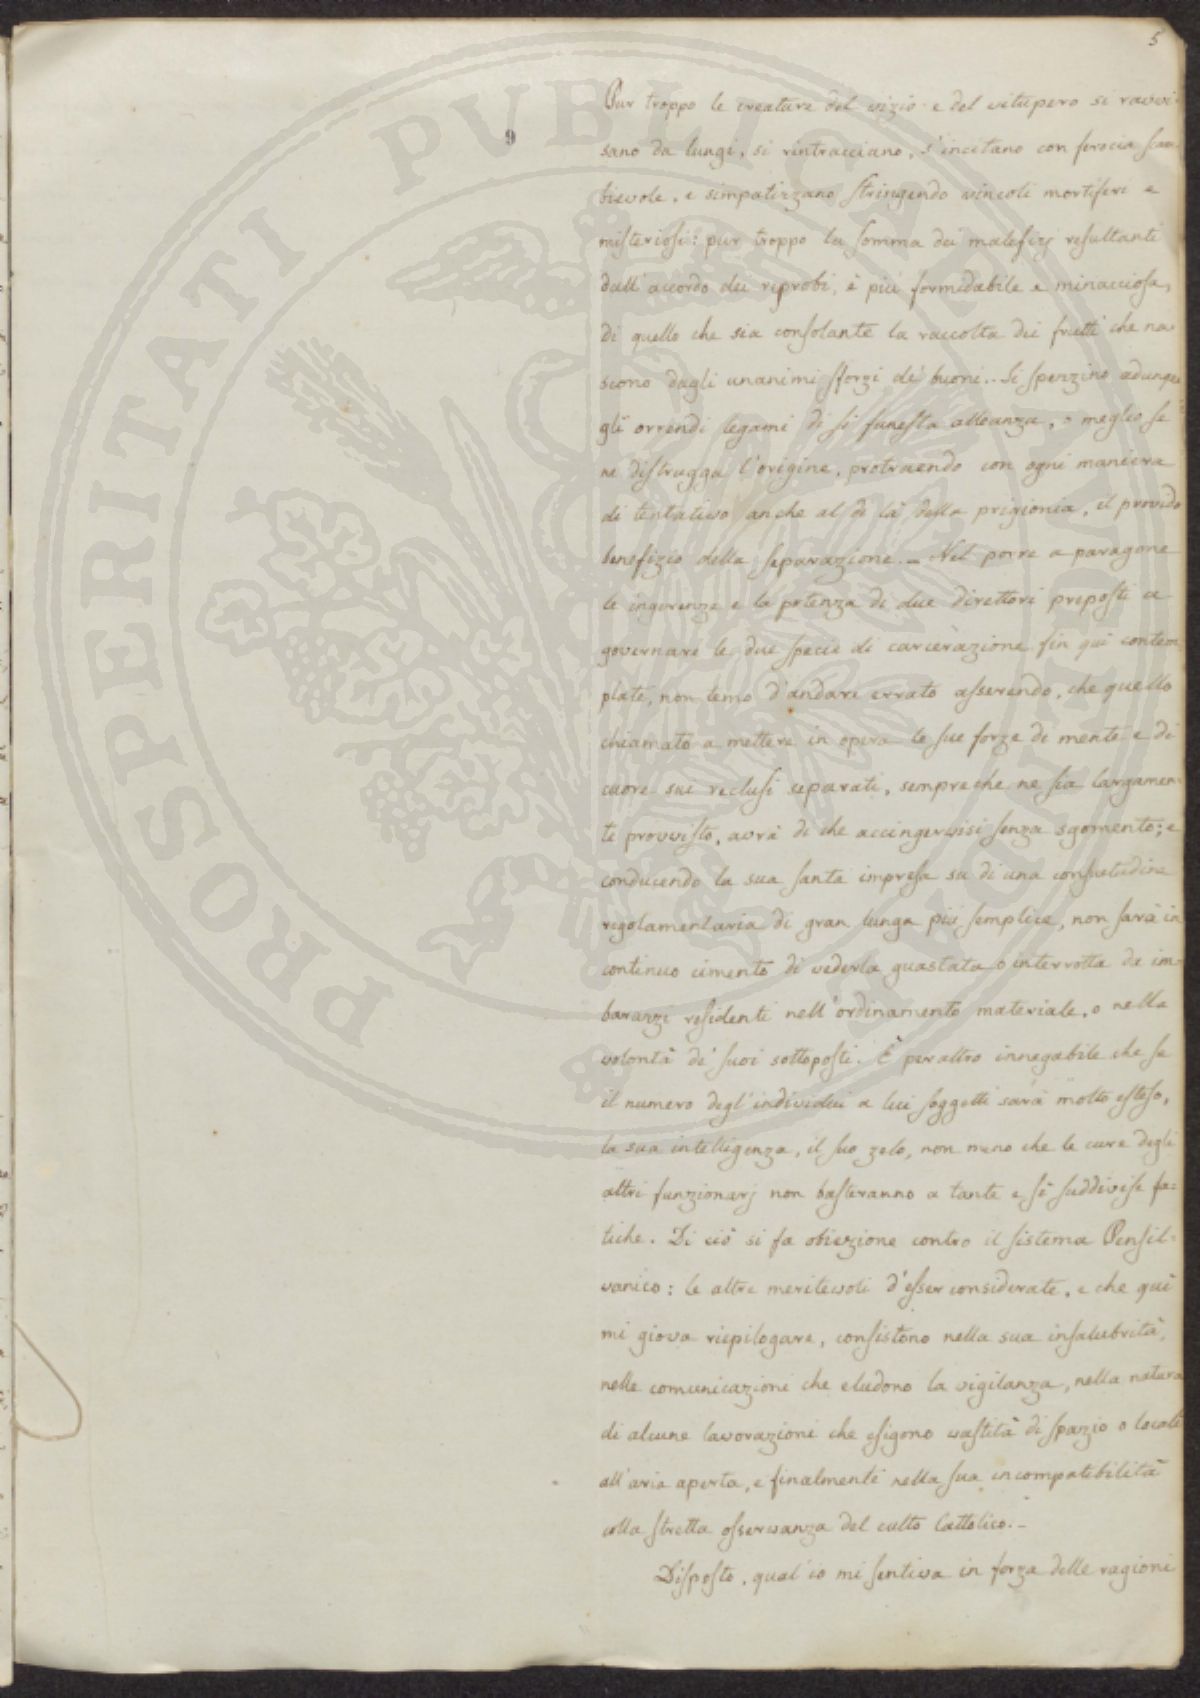 5
9
PROSPERITATI PUBLICAE AUGENDAE
Pur troppo le creature del vizio e del vitupero si ravvi-
sano da lungi, si rintracciano, s'incitano con ferocia scam-
bievole, e simpatizzano stringendo vincoli mortiferi e
misteriosi: pur troppo la somma dei malefizj resultanti
dall'accordo dei reprobi, è più formidabile e minacciosa,
di quello che sia consolante la raccolta dei frutti che na-
scono dagli unanimi sforzi de' buoni.. Si spezzino adunque
gli orrendi legami di sì funesta alleanza, o meglio se
ne distrugga l'origine, protraendo con ogni maniera
di tentativo anche al di là della prigionia, il provido
benefizio della separazione. - Nel porre a paragone
le ingerenze e la potenza di due Direttori preposti a
governare le due specie di carcerazione fin qui contem
plate, non temo d'andare errato asserendo, che quello
chiamato a mettere in opera le sue forze di mente e di
cuore sui reclusi separati, sempre che ne sia largamen-
te provvisto, avrà di che accingervisi senza sgomento; e
conducendo la sua santa impresa su di una consuetudine
regolamentaria di gran lunga più semplice, non sarà in
continuo cimento di vederla guastata o interrotta da im-
barazzi residenti nell'ordinamento materiale, o nella
volontà de' suoi sottoposti. È per altro innegabile che se
il numero degl'individui a lui soggetti sarà molto esteso,
la sua intelligenza, il suo zelo, non meno che le cure degli
altri funzionarj non basteranno a tante e sì suddivise fa=
tiche. Di ciò si fa obiezione contro il sistema Pensil-
vanico: le altre meritevoli d'esser considerate, e che quì
mi giova riepilogare, consistono nella sua insalubrità,
nelle comunicazioni che eludono la vigilanza, nella natura
di alcune lavorazioni che esigono vastità di spazio o locali
all'aria aperta, e finalmente nella sua incompatibilità
colla stretta osservanza del culto Cattolico. -
Disposto, qual'io mi sentiva in forza delle ragioni